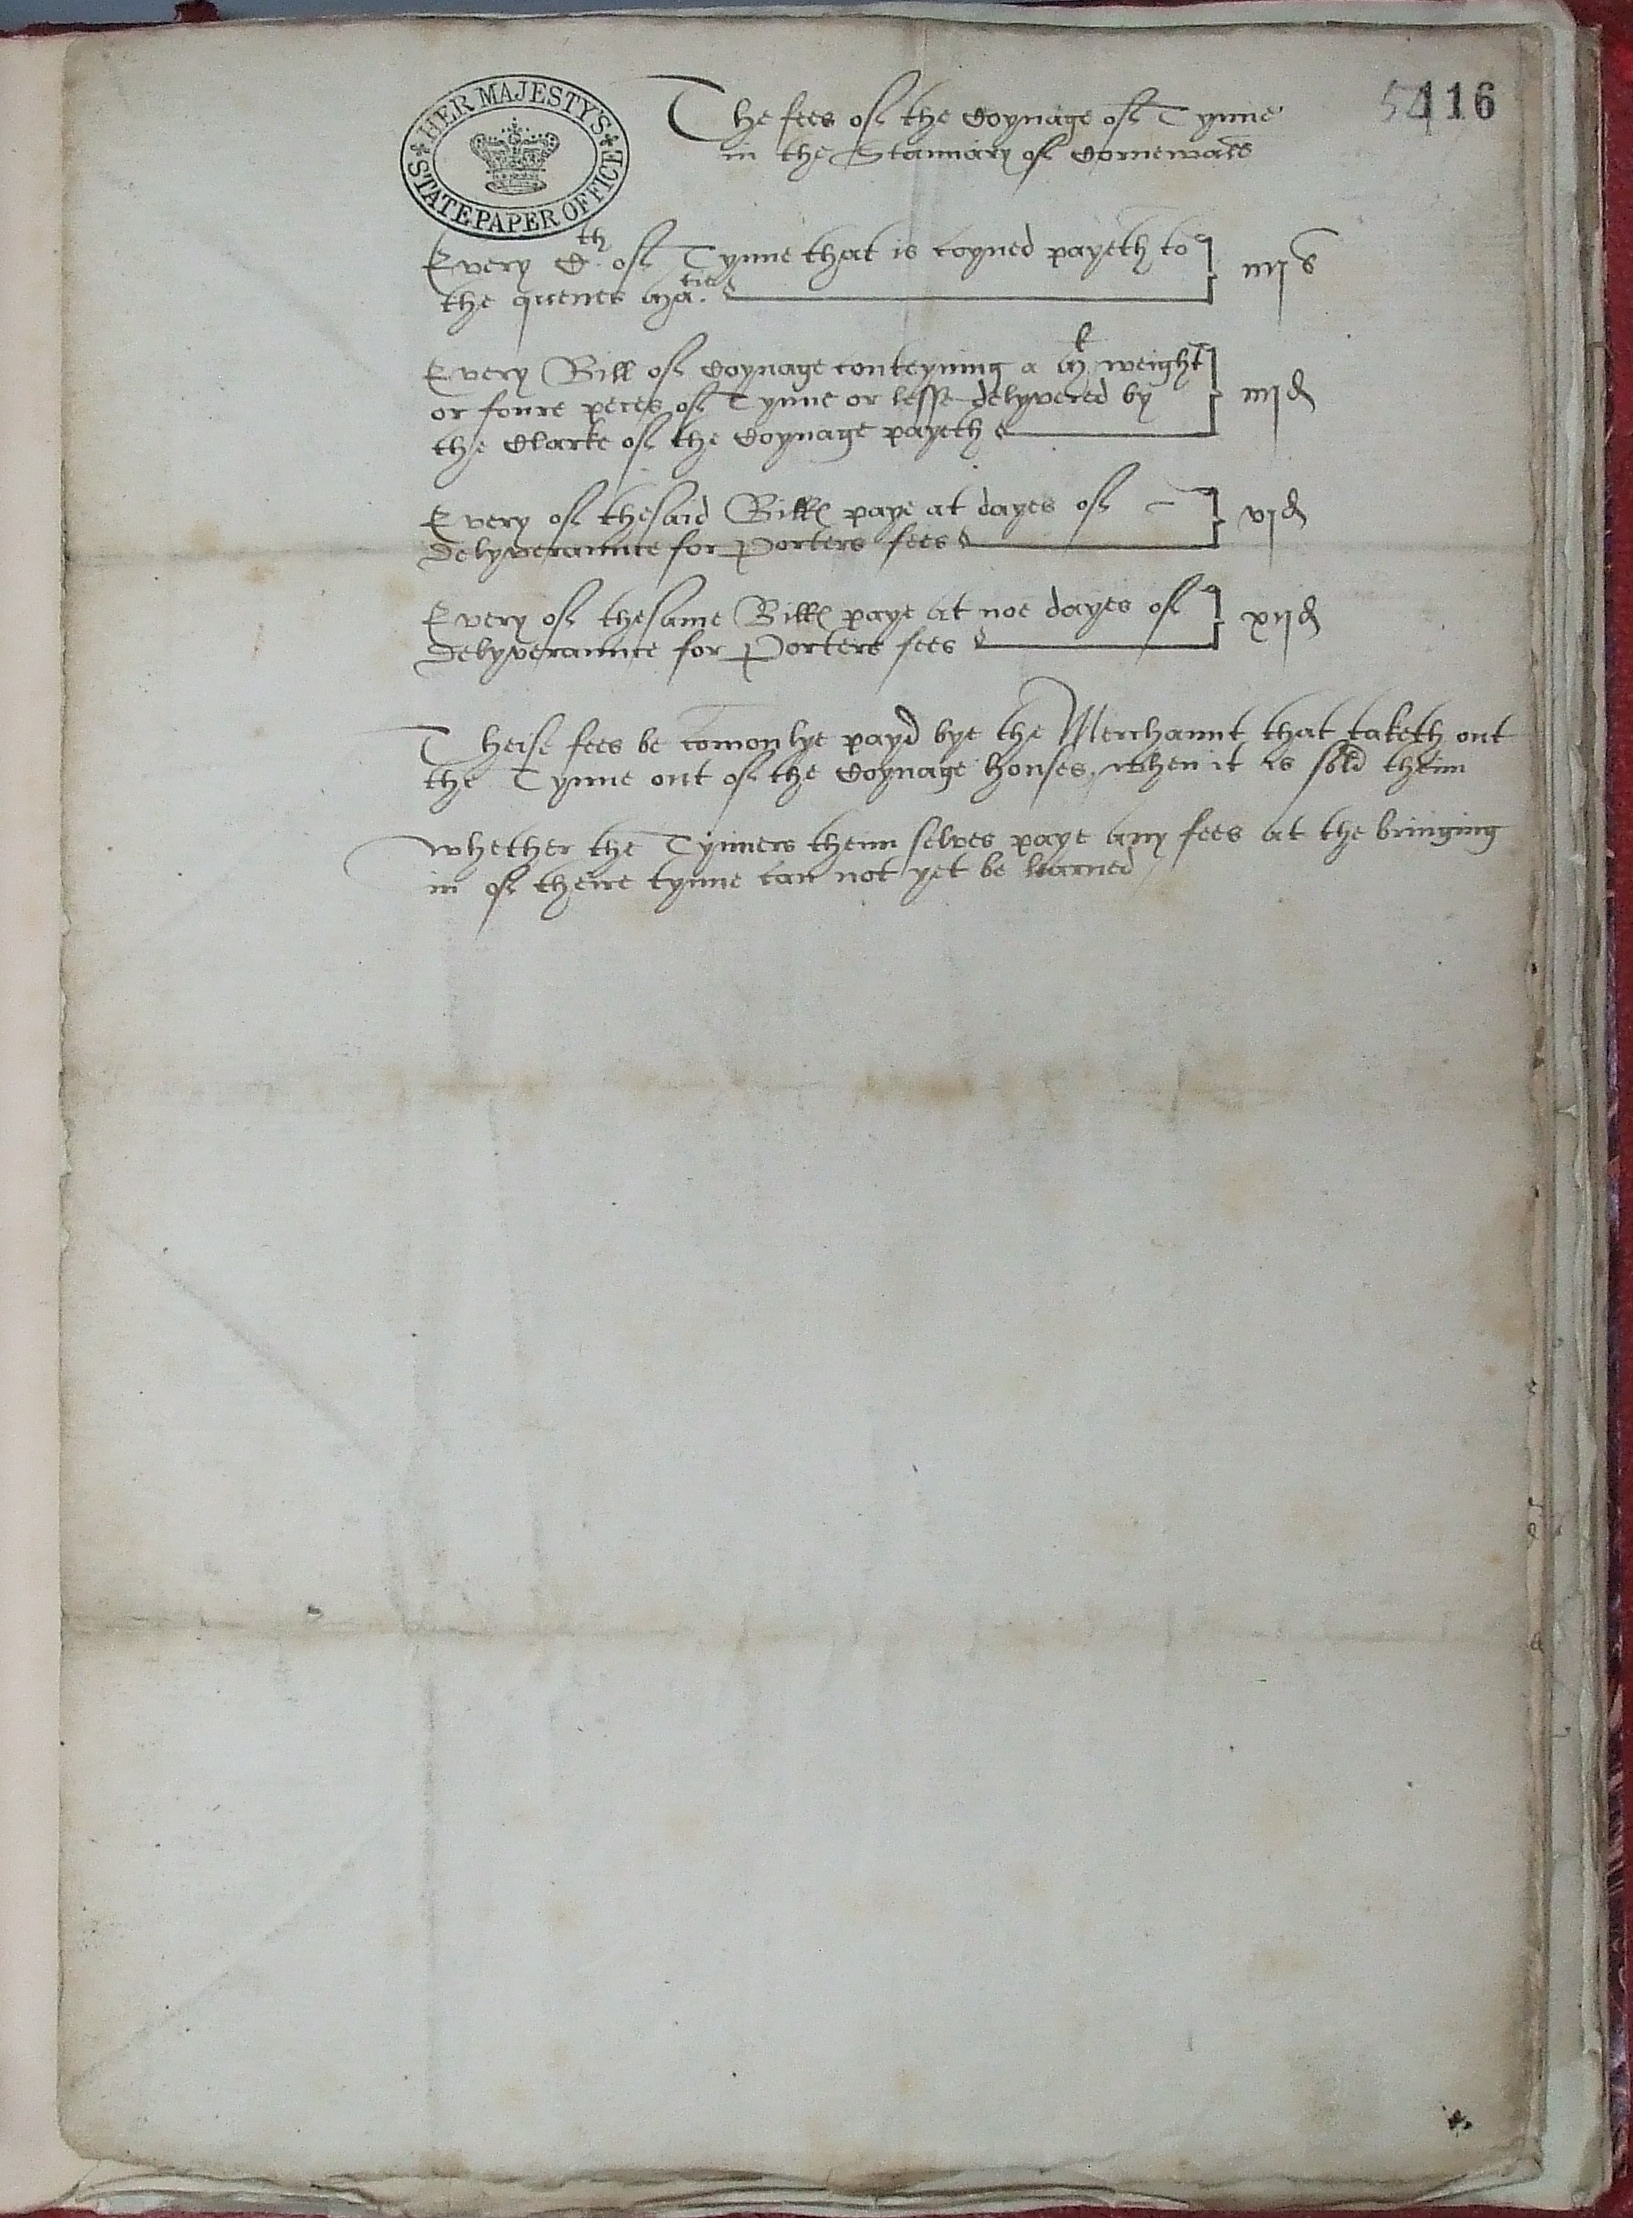 HER MAJESTY'S
STATE PAPER OFFICE
54 116
The fees of the Coynage of Tynne
in the Stannary of Cornewall
Every C.th of Tynne that is coyned payeth to
the quenes Ma.tie
iiij s
Every Bill of Coynage conteyning a M weight
or foure peces of Tynne or lesse delyvered by
the Clarke of the Coynage payeth
iiij d
Every of thesaid Billes paye at dayes of
delyveraunce for Porters fees
vj d
Every of thesame Billes paye at noe dayes of
delyveraunce for Porters fees
xij d
Theise fees be comonlye payd bye the Merchaunt that taketh out
the Tynne out of the Coynage houses, when it is sold theim
whether the Tynners theim selves paye any fees at the bringing
in of theire tynne can not yet be learned